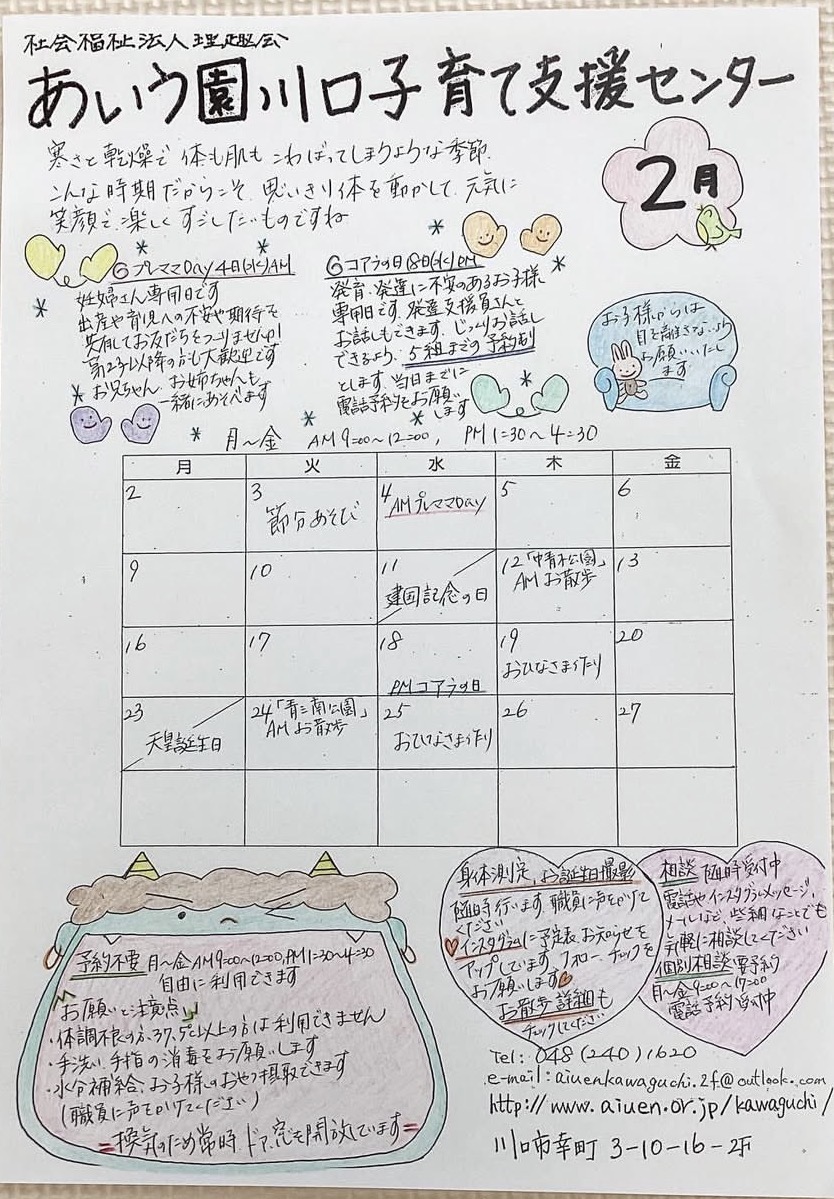 社会福祉法人理趣会
あいう園川口子育て支援センター
2月
寒さと乾燥で 体も肌も こわばってしまうような季節.
こんな時期だからこそ、思いきり体を動かして、元気に
笑顔で、楽しくすごしたいものですね
◎プレママDay 4日(水)AM
妊婦さん専用日です
出産や育児への不安や期待を
共有してお友だちをつくりませんか!
第2子以降の方も大歓迎です
お兄ちゃん、お姉ちゃんも
一緒にあそべます
◎コアラの日 18日(水)PM
発育、発達に不安のあるお子様
専用日です。発達支援員さんと
お話しもできます。じっくりお話し
できるよう、5組までの予約制
とします。当日までに
電話予約をお願い
します
お子様からは
目を離さないよう
お願いいたし
ます
月〜金 AM9:00〜12:00, PM1:30〜4:30
月 火 水 木 金
2 3 4 5 6
節分あそび AMプレママDay
9 10 11 12「中青木公園」 13
建国記念の日 AMお散歩
16 17 18 19 20
PMコアラの日 おひなさま作り
23 24「青三南公園」 25 26 27
天皇誕生日 AMお散歩 おひなさま作り
予約不要 月〜金AM9:00〜12:00,PM1:30〜4:30
自由に利用できます
お願いと注意点
・体調不良の方、37,5℃以上の方は利用できません
・手洗い、手指の消毒をお願いします
・水分補給、お子様のおやつ摂取できます
(職員に声をかけてください)
=換気のため常時、ドア、窓を開放しています=
身体測定、お誕生日撮影
随時行います。職員に声をかけて
ください
インスタグラムに予定表、お知らせを
アップしています。フォロー、チェックを
お願いします
お散歩詳細も
チェックしてください
相談 随時受付中
電話やインスタグラムメッセージ、
メールなど、些細なことでも
気軽に相談してください
個別相談 要予約
月〜金9:00〜17:00
電話予約受付中
Tel: 048(240)1620
e-mail: aiuenkawaguchi.2f@outlook.com
http://www.aiuen.or.jp/kawaguchi/
川口市幸町 3-10-16-2F